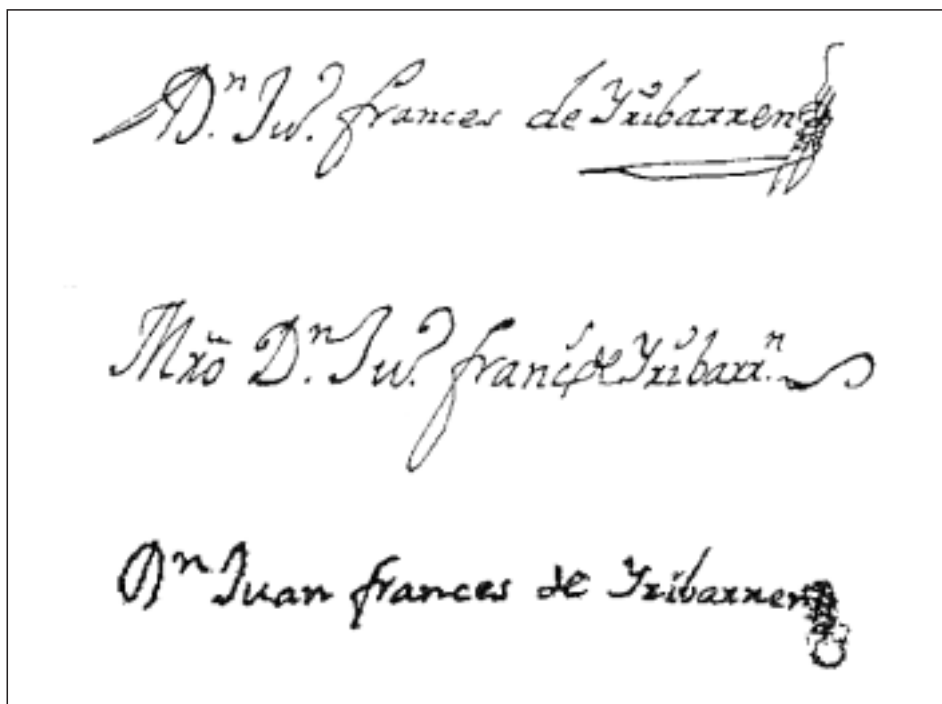 Dⁿ. Juº. frances de Yribarren
Mrõ Dⁿ. Juº. franᶜˢ de Yribarrⁿ.
Dⁿ Juan frances de Yribarren